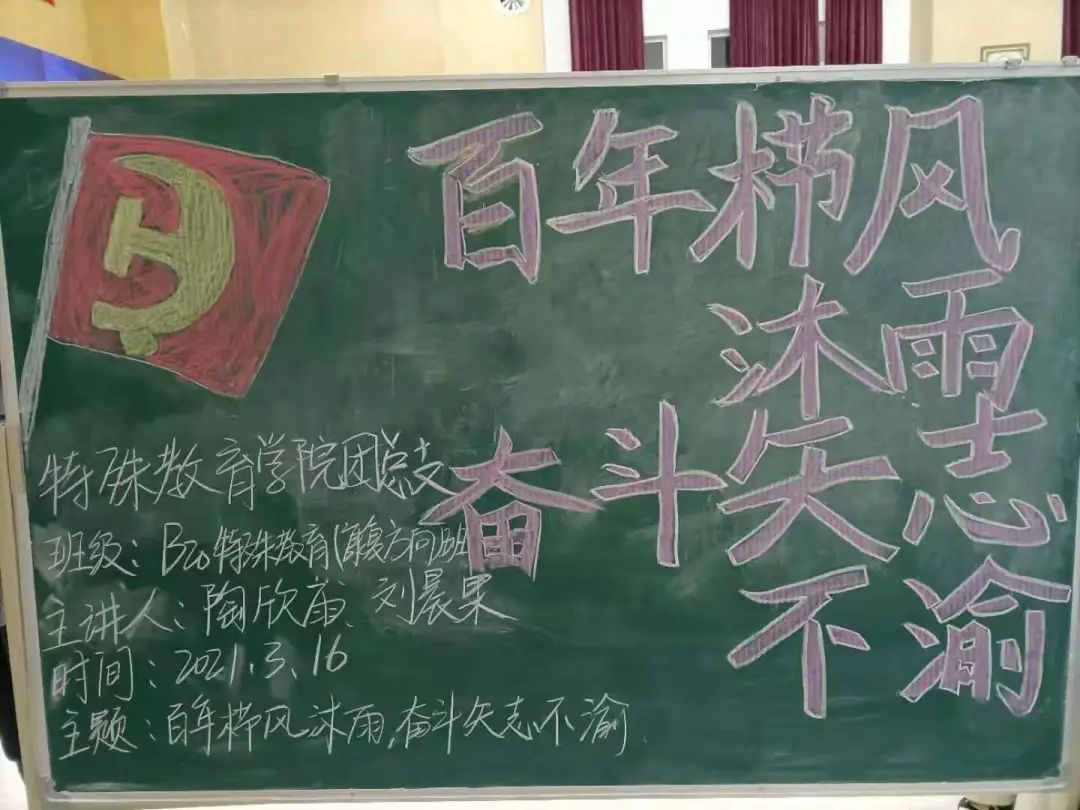 百年栉风
沐雨
奋斗矢志
不渝
特殊教育学院团总支
班级：B20特殊教育(康复方向)班
主讲人：陶欣、刘晨果
时间：2021.3.16
主题：百年栉风沐雨,奋斗矢志不渝